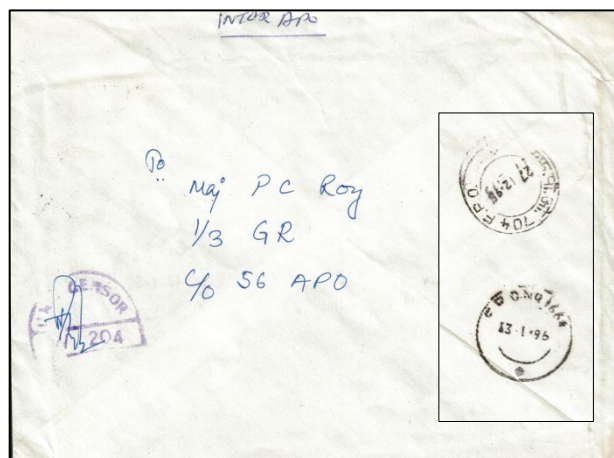 INTER APO
To
Maj P C Roy
1/3 GR
C/o 56 APO
CENSOR
204
704 F.P.O.
27.12.95
O.NO.1664
13-1-96